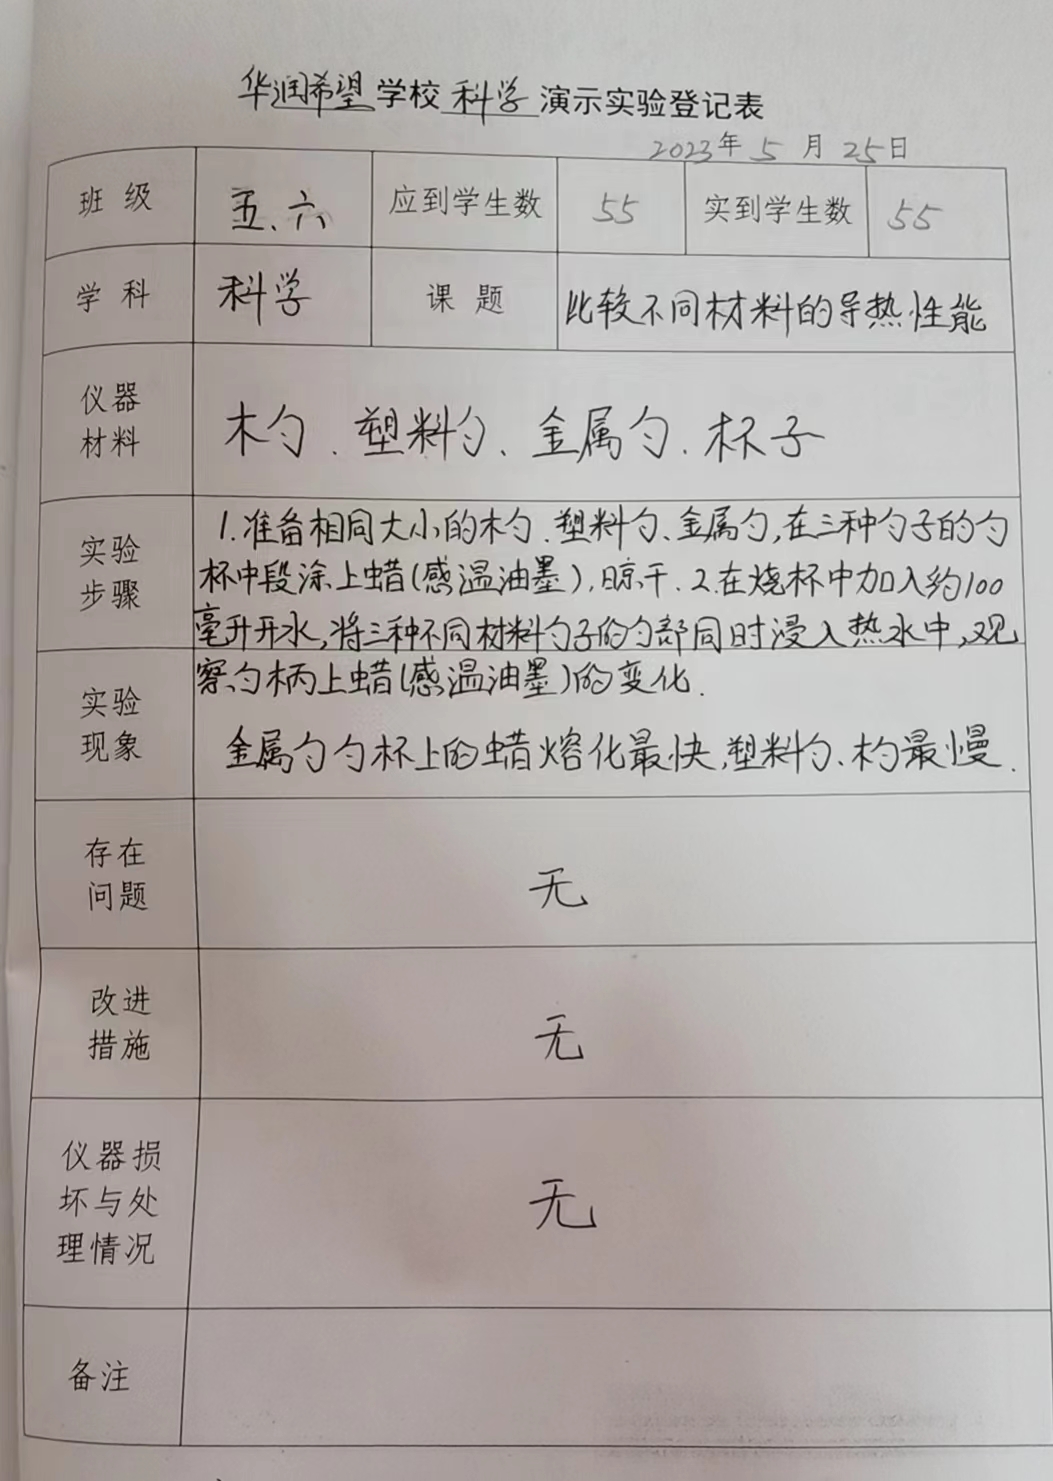 华润希望学校科学演示实验登记表
2023年5月25日
班级 五、六 应到学生数 55 实到学生数 55
学科 科学 课题 比较不同材料的导热性能
仪器
材料
木勺、塑料勺、金属勺、杯子
实验
步骤
1.准备相同大小的木勺、塑料勺、金属勺,在三种勺子的勺
杯中段涂上蜡(感温油墨),晾干.2.在烧杯中加入约100
毫升开水,将三种不同材料勺子的勺部同时浸入热水中,观
察勺柄上蜡(感温油墨)的变化.
实验
现象
金属勺勺杯上的蜡熔化最快,塑料勺、木勺最慢.
存在
问题
无
改进
措施
无
仪器损
坏与处
理情况
无
备注